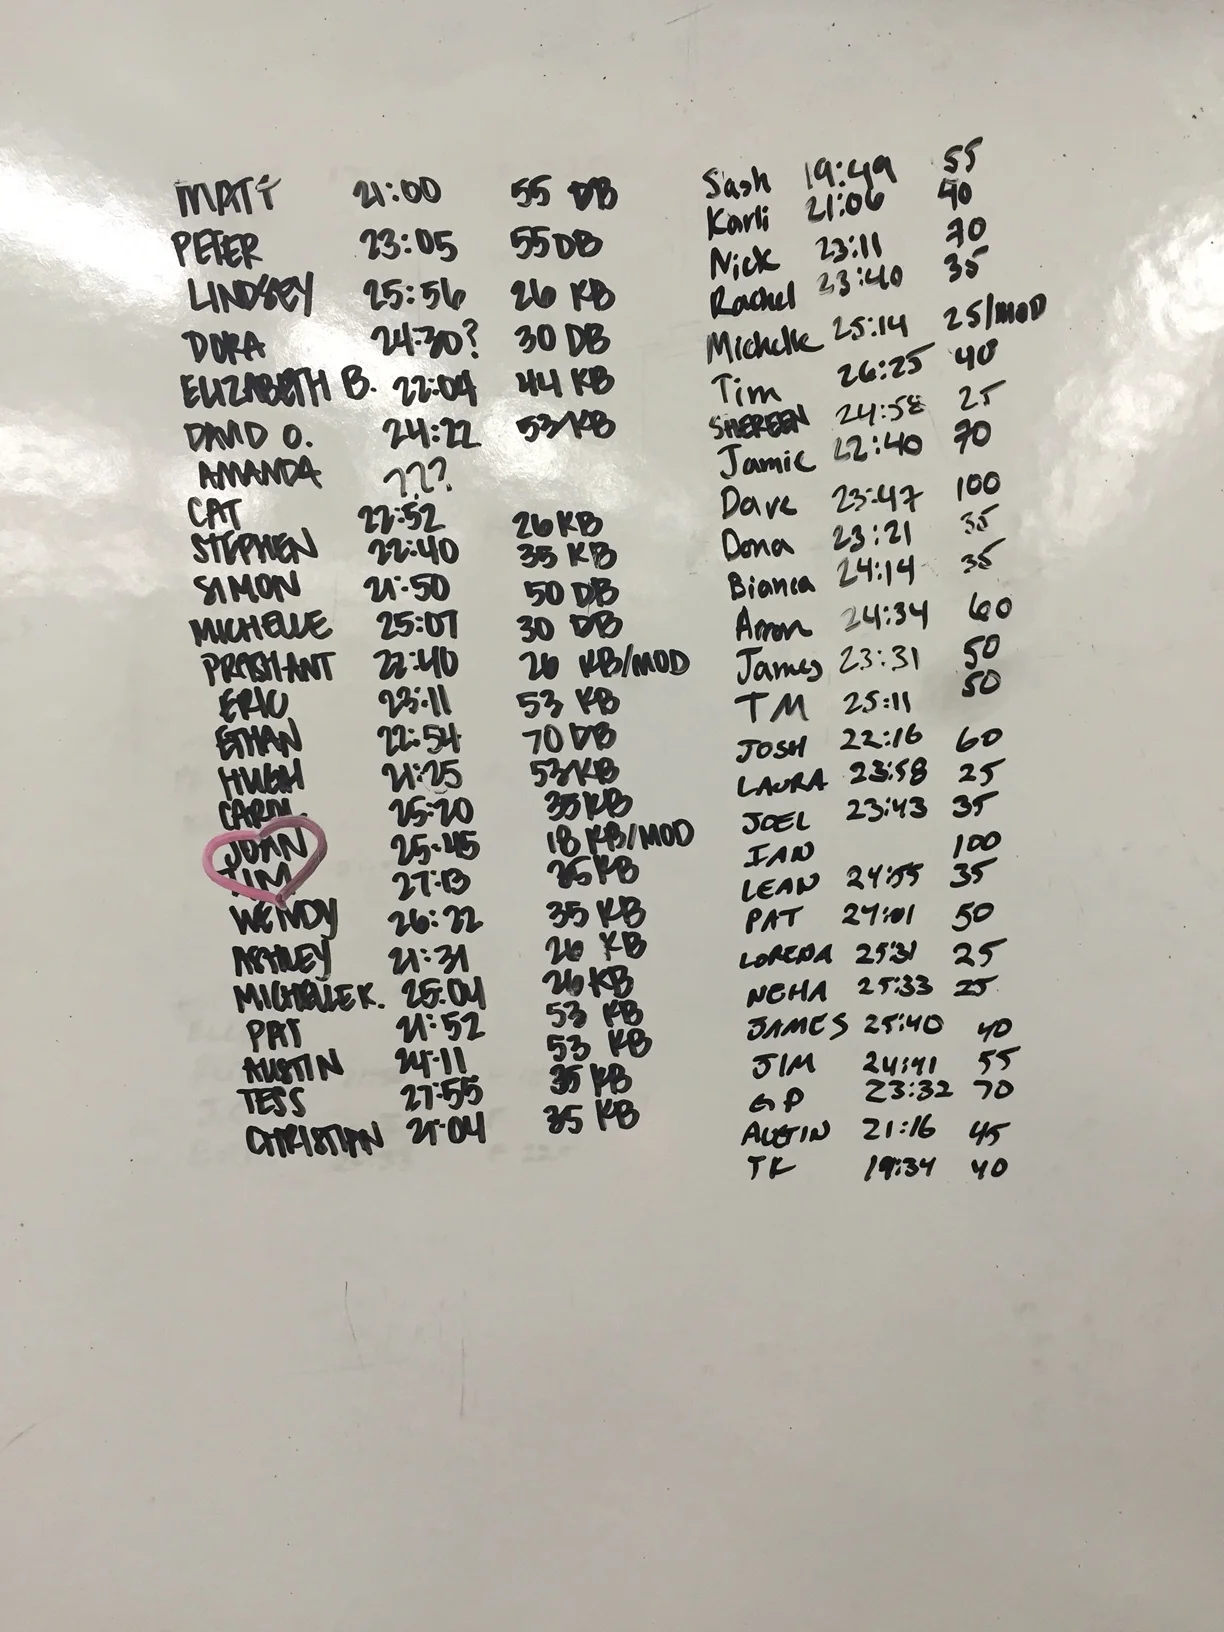 MATT 21:00 55 DB
PETER 23:05 55 DB
LINDSEY 25:56 26 KB
DORA 24:30? 30 DB
ELIZABETH B. 22:04 44 KB
DAVID O. 24:22 53 KB
AMANDA ???
CAT 22:52 26 KB
STEPHEN 22:40 35 KB
SIMON 21:50 50 DB
MICHELLE 25:07 30 DB
PRASHANT 22:40 26 KB/MOD
ERIC 23:11 53 KB
ETHAN 22:54 70 DB
HUGH 21:25 53 KB
CAROL 25:20 35 KB
JOAN 25:45 18 KB/MOD
JIM 27:13 35 KB
WENDY 26:22 35 KB
ASHLEY 21:31 26 KB
MICHELLE K. 25:04 26 KB
PAT 21:52 53 KB
AUSTIN 24:11 53 KB
TESS 27:55 35 KB
CHRISTIAN 21:04 35 KB
Sash 19:49 55
Karli 21:06 40
Nick 23:11 70
Rachel 23:40 35
Michelle 25:14 25/MOD
Tim 26:25 40
SHEREEN 24:58 25
Jamie 22:40 70
Dave 23:47 100
Dona 23:21 35
Bianca 24:14 35
Arron 24:34 60
James 23:31 50
TM 25:11 50
JOSH 22:16 60
LAURA 23:58 25
JOEL 23:43 35
IAN 100
LEAN 24:55 35
PAT 24:01 50
LORENA 25:31 25
NEHA 25:33 25
JAMES 25:40 40
JIM 24:41 55
GP 23:32 70
AUSTIN 21:16 45
TK 19:34 40